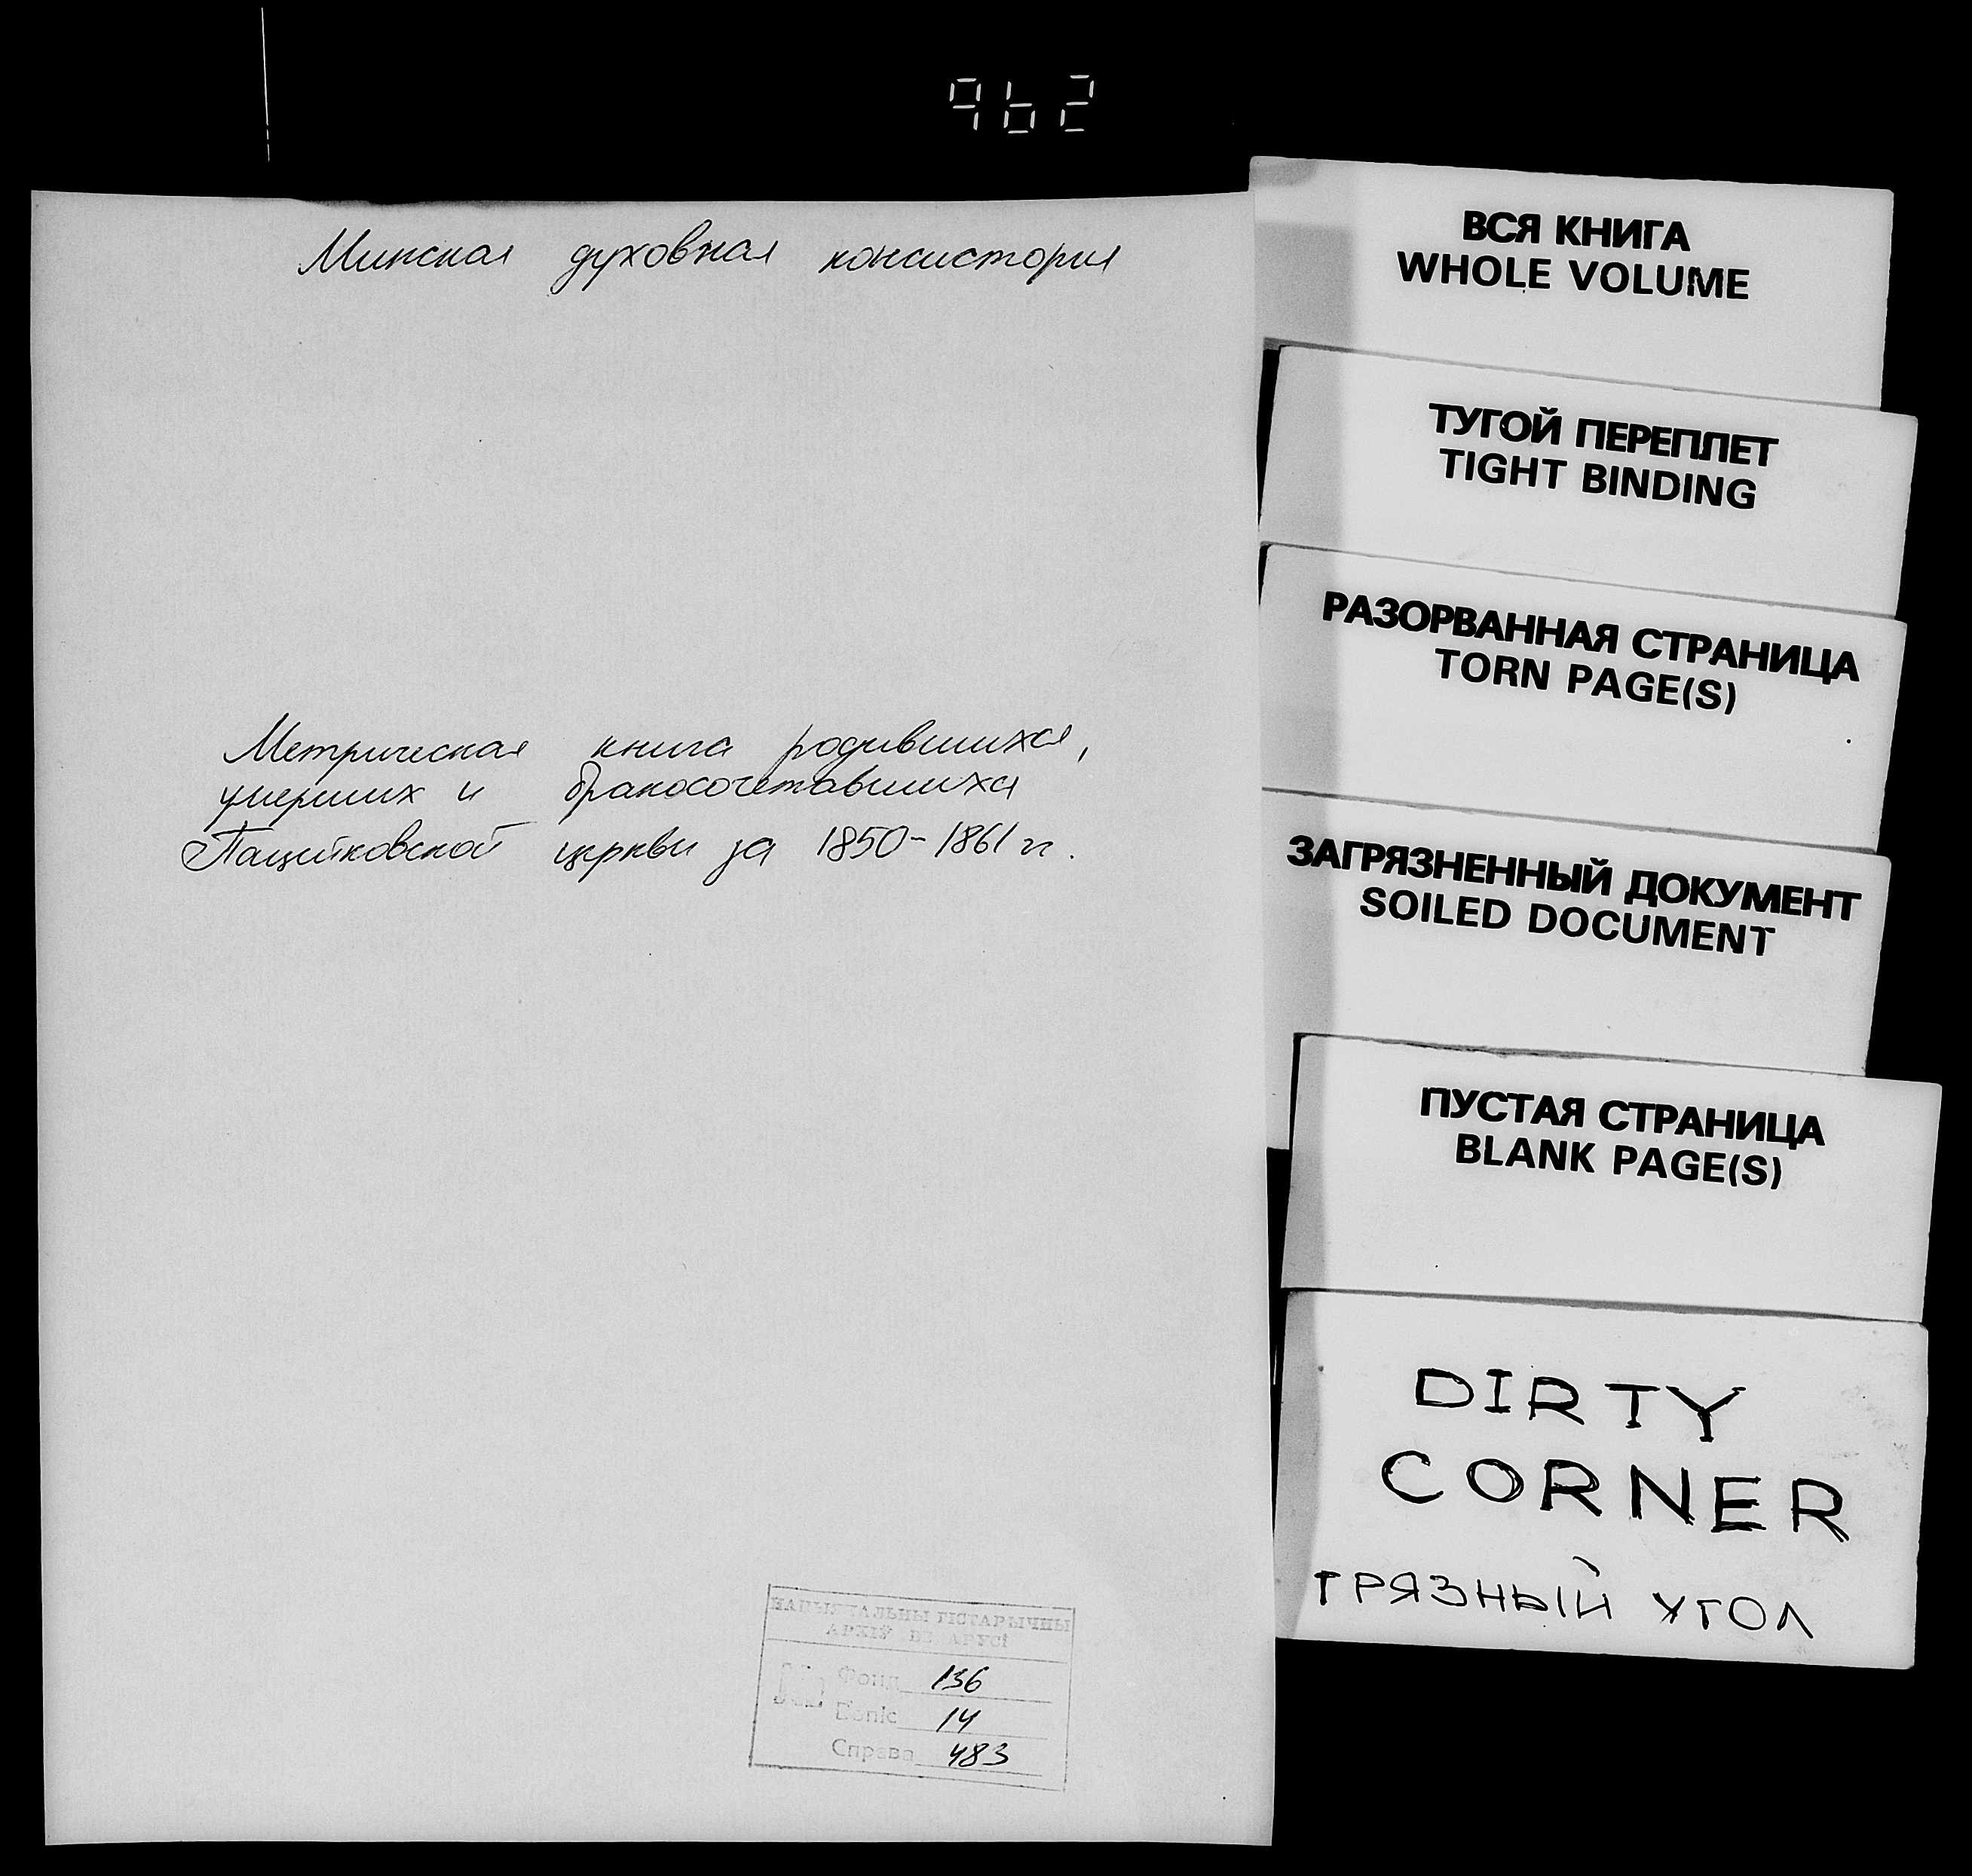 962
Минская духовная консистория
Метрическая книга родившихся,
умерших и бракосочетавшихся
Пацейковской церкви за 1850-1861 гг.
НАЦЫЯНАЛЬНЫ ГІСТАРЫЧНЫ
АРХІЎ БЕЛАРУСІ
Фонд 136
Вопіс 14
Справа 483
ВСЯ КНИГА
WHOLE VOLUME
ТУГОЙ ПЕРЕПЛЕТ
TIGHT BINDING
РАЗОРВАННАЯ СТРАНИЦА
TORN PAGE(S)
ЗАГРЯЗНЕННЫЙ ДОКУМЕНТ
SOILED DOCUMENT
ПУСТАЯ СТРАНИЦА
BLANK PAGE(S)
DIRTY
CORNER
ГРЯЗНЫЙ УГОЛ